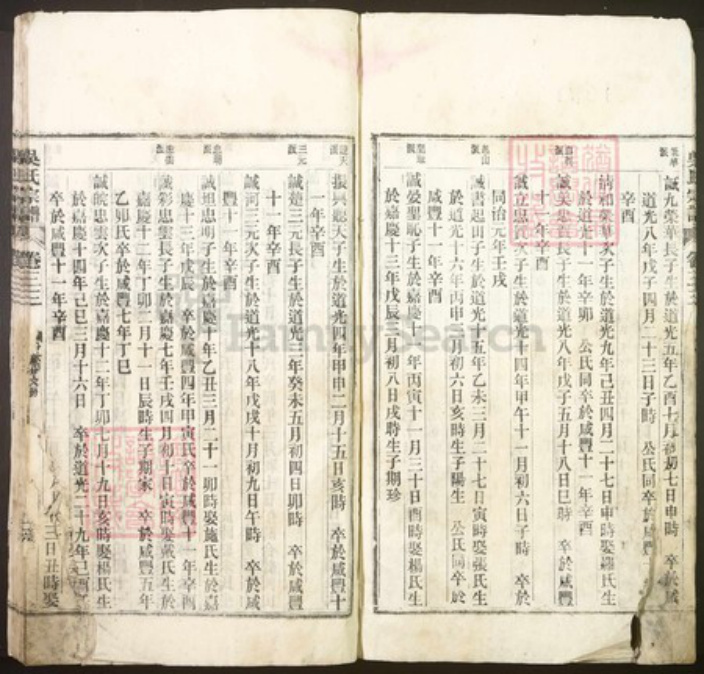 誠九榮華長子生於道光五年乙酉十月初七日申時 卒於咸
道光八年戊子四月二十三日子時 公氏同卒於咸豐
辛酉
榮華次子生於道光九年己丑四月二十七日申時娶羅氏生
於道光十一年辛卯 公氏同卒於咸豐十一年辛酉
長子生於道光八年戊子五月十八日巳時 卒於咸豐
十一年辛酉
誠立忠次子生於道光十四年甲午十一月初六日子時 卒於
同治元年壬戌
誠書起田子生於道光十五年乙未三月二十七日寅時娶張氏生
於道光十六年丙申 月初六日亥時生子陽生 公氏同卒於
咸豐十一年辛酉
誠愛聖 子生於嘉慶十一年丙寅十一月三十日酉時娶楊氏生
於嘉慶十三年戊辰三月初八日戌時生子期珍
振興起天子生於道光四年甲申二月十五日亥時 卒於咸豐十
一年辛酉
誠楚三元長子生於道光三年癸未五月初四日卯時 卒於咸豐
十一年辛酉
誠河三元次子生於道光十八年戊戌十月初九日午時 卒於咸
豐十一年辛酉
誠坦忠明子生於嘉慶十年乙丑三月二十一卯時娶施氏生於嘉
慶十三年戊辰 卒於咸豐四年甲寅氏卒於咸豐十一年辛酉
誠彩忠雲長子生於嘉慶七年壬戌四月初十日寅時娶戴氏生於
嘉慶十二年丁卯二月十一日辰時生子期家 卒於咸豐五年
乙卯氏卒於咸豐七年丁巳
誠皖忠雲次子生於嘉慶十二年丁卯七月十九日亥時娶楊氏生
於嘉慶十四年己巳三月十六日 卒於道光二十九年己酉氏
卒於咸豐十一年辛酉
三日丑時娶
吳氏宗譜 卷三三
FamilySearch